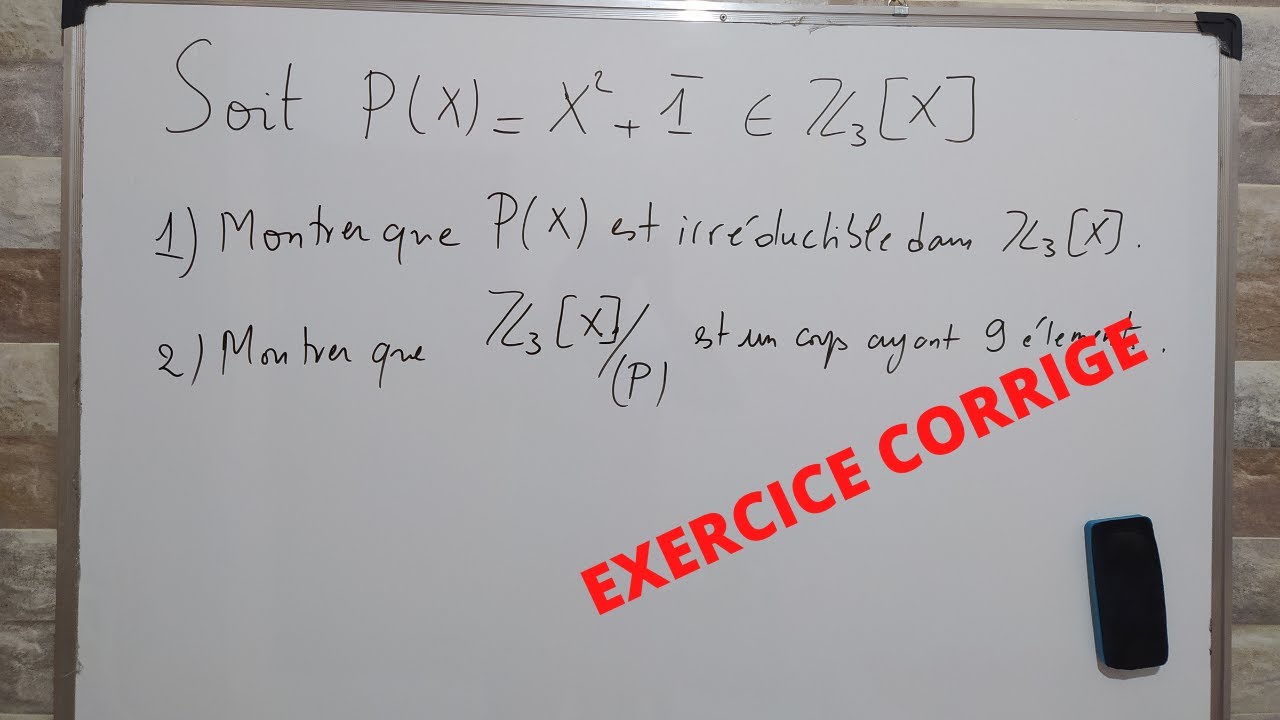 Soit P(X) = X² + 1̄ ∈ ℤ₃[X]
1) Montrer que P(X) est irréductible dans ℤ₃[X].
2) Montrer que ℤ₃[X]/(P) est un corps ayant 9 éléments.
EXERCICE CORRIGE